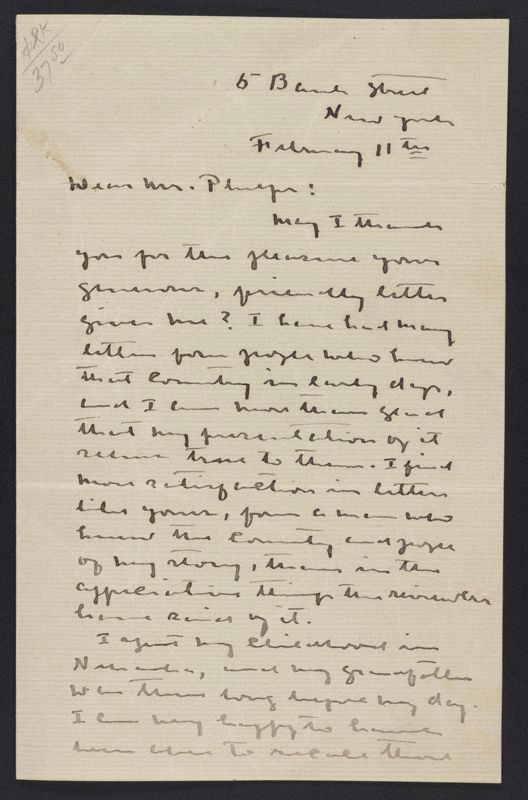 $RK
37.50
5 Bank Street
New York
February 11th
Dear Mr. Phelps:
May I thank
you for the pleasure your
generous, friendly letter
gives me? I have had many
letters from people who knew
that country in early days,
and I am more than glad
that my presentation of it
seems true to them. I find
more satisfaction in letters
like yours, from a man who
knew the country and people
of my story, than in the
appreciative things the reviewers
have said of it.
I spent my childhood in
Nebraska, and my grandfather
was there long before my day.
I am very happy to have
been able to recall those